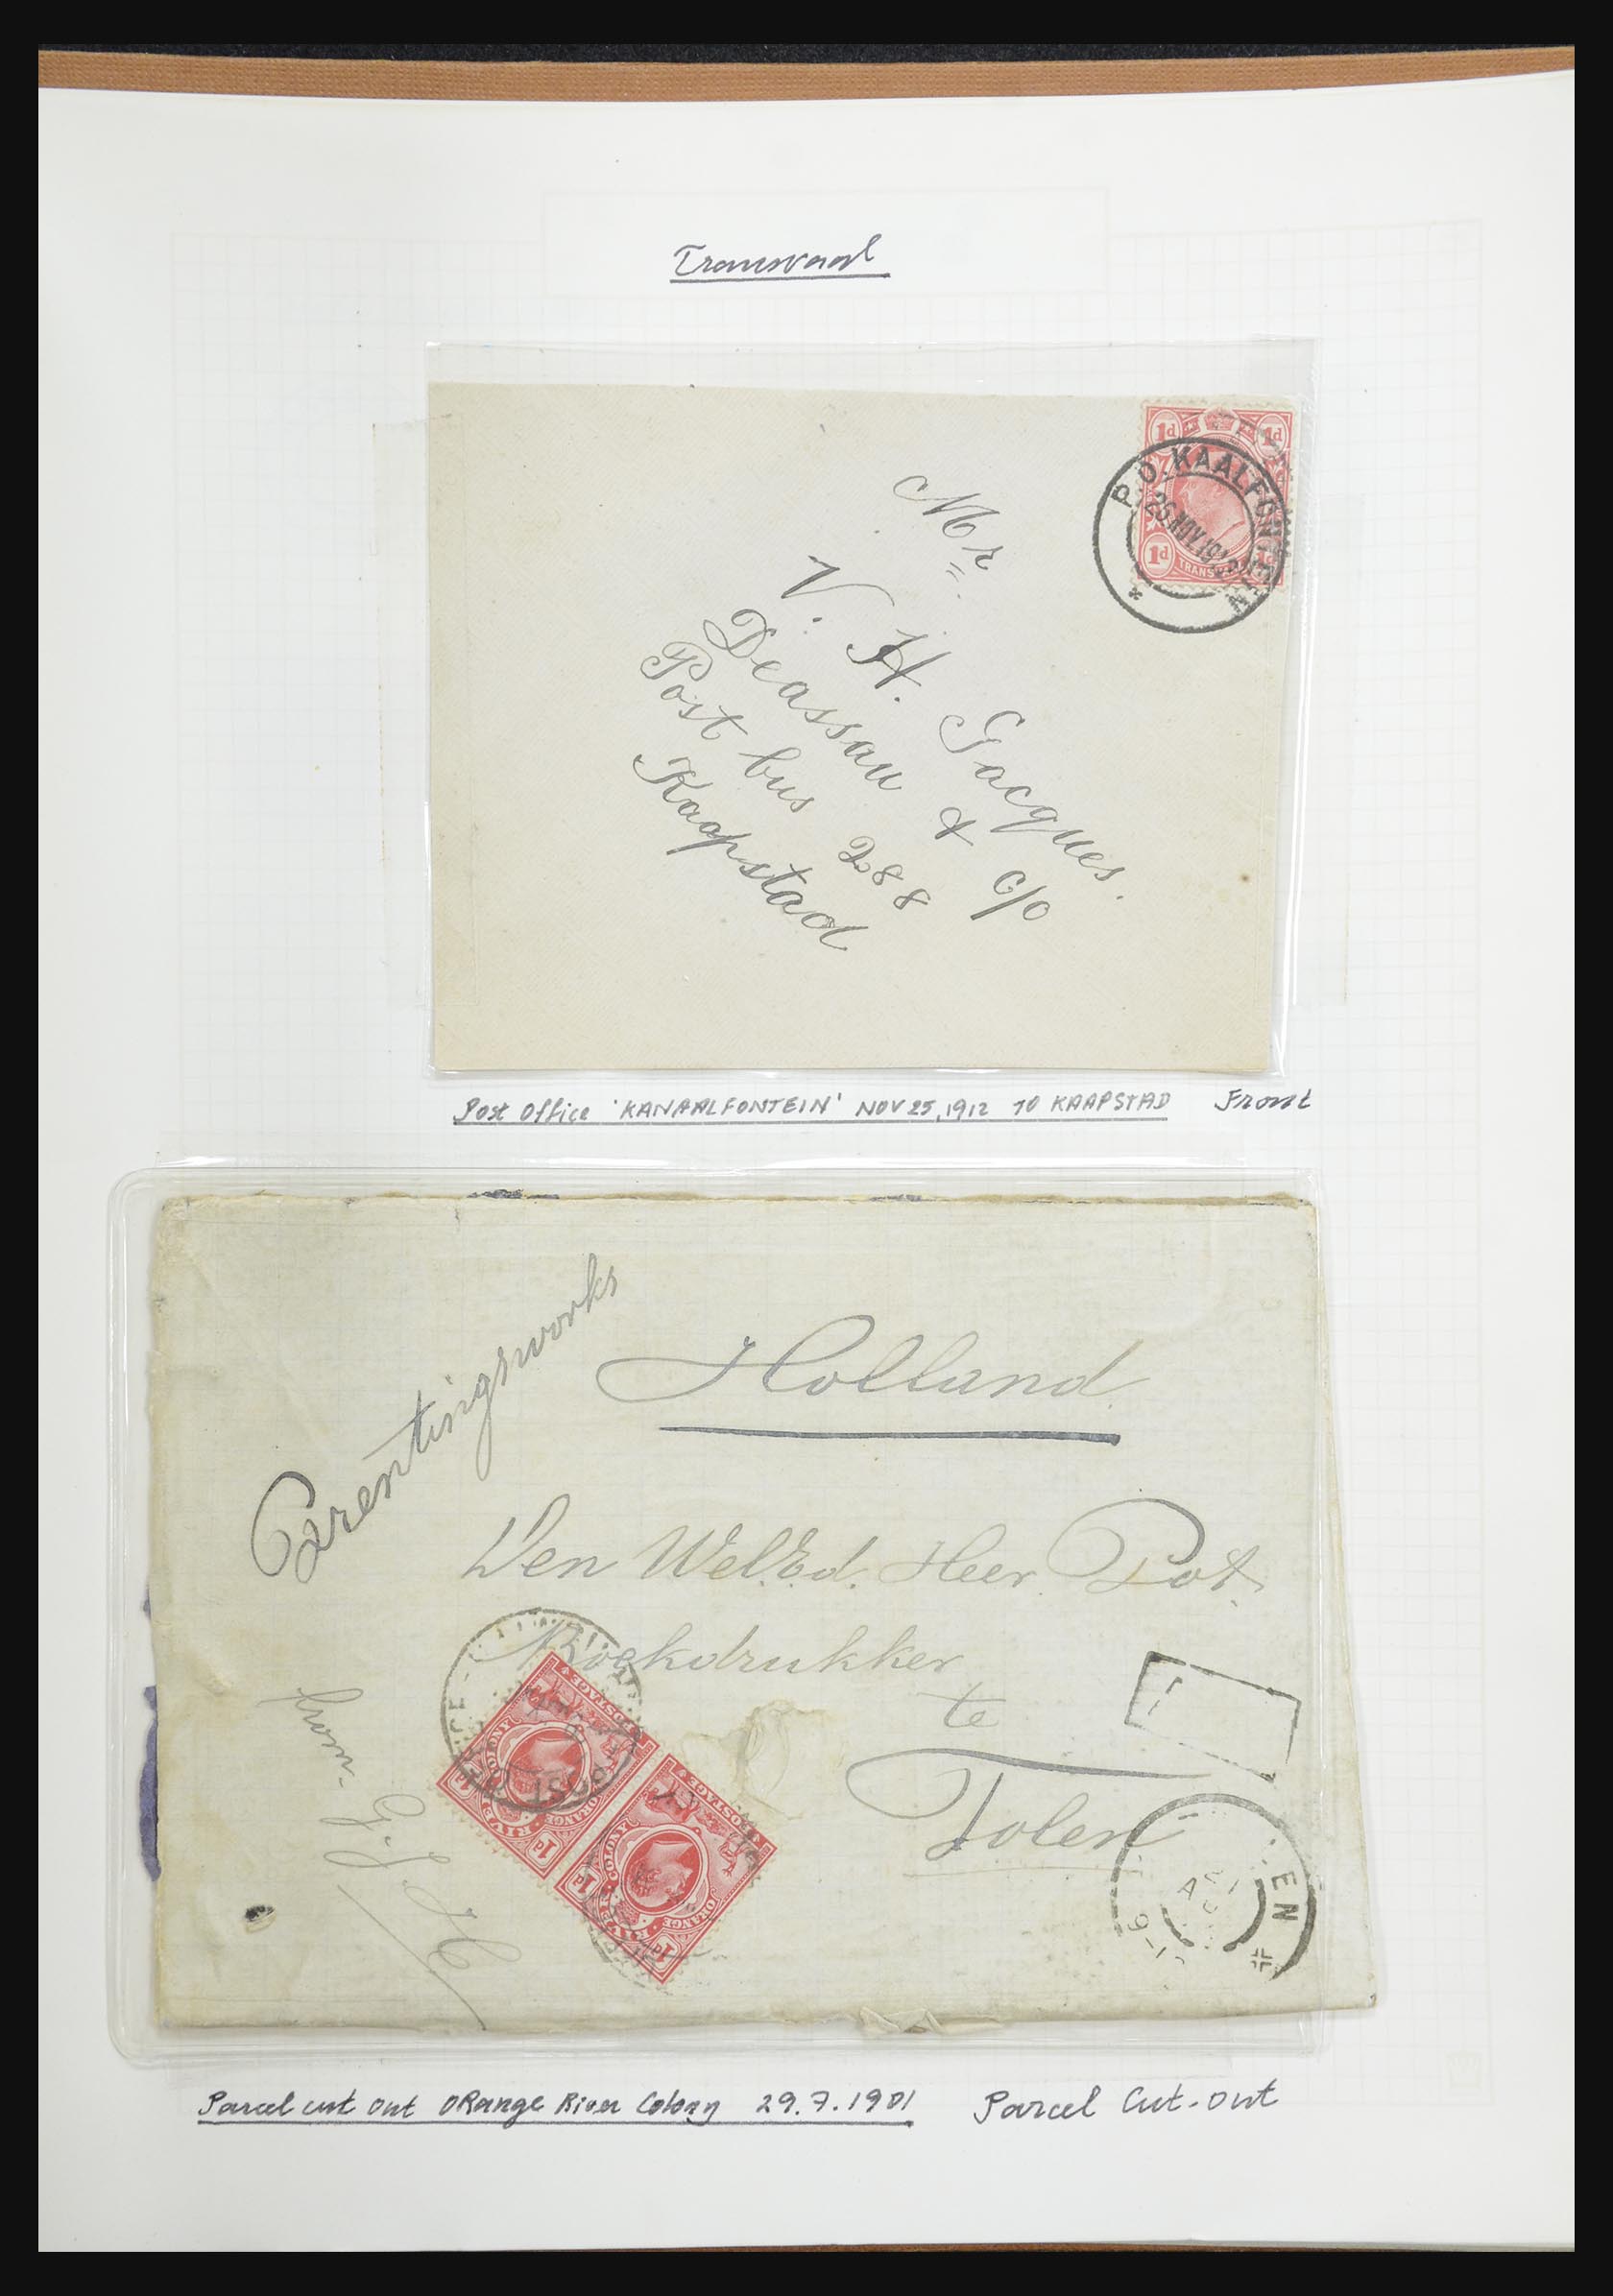 Transvaal
1d 1d
P.O. KAALFONTEIN
25 NOV 1912
1d
TRANSVAAL
Mr
V. H. Gacques.
Deassau & C/o
Post bus 288
Kaapstad
Post Office 'KANAALFONTEIN' NOV 25, 1912 TO KAAPSTAD Front
Parentingsworks
Holland
Den Wel.Ed. Heer Pot.
Boekdrukker
te
Tolen
from G. J. H
POSTAGE
ORANGE RIVER COLONY
1d 1d
POSTAGE
ORANGE RIVER COLONY
1d 1d
POST
EN
Parcel cut out ORange River Colony 29.7.1901 Parcel Cut-out